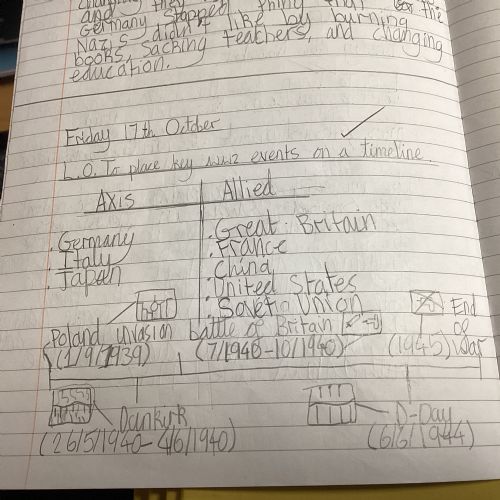 and they
Germany stopped thing that the
Nazis didn't like by burning
books, sacking teachers, and changing
education.
Friday 17th October
L.O. To place key ww2 events on a timeline.
Axis Allied
· Germany · Great Britain
· Italy · France
· Japan · China
· United States
· Soveti Union
Poland invasion battle of Britain End of War
(1/9/1939) (7/1940-10/1940) (1945)
Dunkirk D-Day
(26/5/1940-4/6/1940) (6/6/1944)